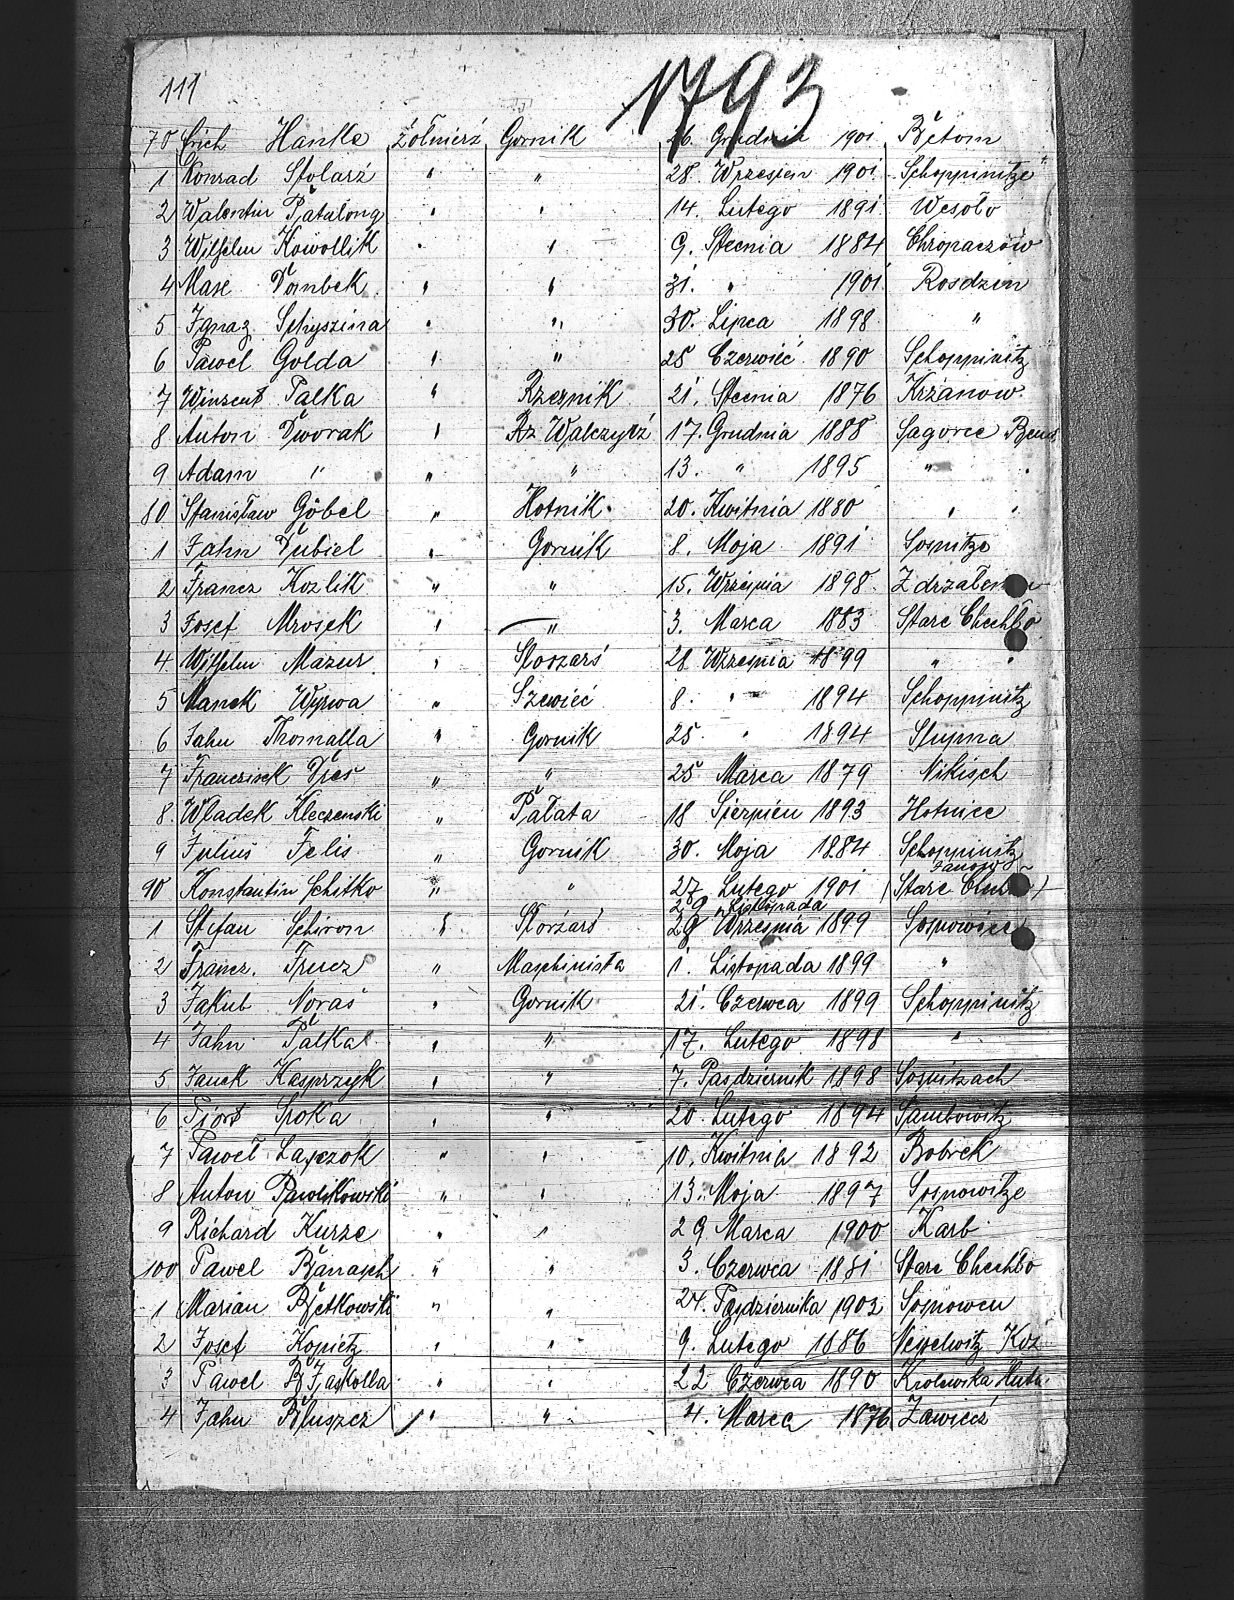 111
1793
70 Erich Hanke Żołnierź Gornik 26. Grudnia 1901 Bytom
1 Konrad Stolarź " " 28. Wrzesien 1901 Schoppinitze
2 Walentin Patalong " " 14. Lutego 1891 Wesoło
3 Wilhelm Kowollik " " 9. Stecnia 1884 Chropaczów
4 Maxe Dombek " " 31. " 1901 Rosdzen
5 Ignaz Schyszina " " 30. Lipca 1898 "
6 Pawel Golda " " 25 Czerwieć 1890 Schoppinitz
7 Winzent Palka " Rzeznik 21. Stecnia 1876 Krzanow
8 Anton Dworak " Rz Walczycź 17. Grudnia 1888 Sagorce
9 Adam " " " 13. " 1895 " "
80 Stanisław Göbel " Hotnik 20. Kwitnia 1880 " "
1 Jahn Dubiel " Gornik 8. Moja 1891 Sosnitze
2 Francz Kozlik " " 15. Wrzesnia 1898
3 Josef Mrosek " " 3. Marca 1883 Stare Chechło
4 Wilhelm Mazur " Sloszarś 28 Wrzesnia 1899 " "
5 Manek Wyrwa " Szewieć 8. " 1894 Schoppinitz
6 Jahn Thomalla " Gornik 25. " 1894 Slupna
7 Franczisek Dies " " 25 Marca 1879 Nikisch
8. Wladek Kleczenski " Palata 18 Sierpien 1893 Hotnice
9 Julius Felis " Gornik 30. Moja 1884 Schoppinitz
90 Konstantin Schitko " " 27 Lutego 1901 (Stare
29 Listopada
1 Stefan Schiron " Słorżarś 28 Wrzesnia 1899 Sosnowiec
2 Francz. Frucz " Maschinista 1. Listopada 1899 "
3 Jakub Noraś " Gornik 21. Czerwca 1899 Schoppinitz
4 Jahn Palka " " 17. Lutego 1898 "
5 Janek Kasprzyk " " 7. Pasdziernik 1898 Sosnitzach
6 Piotr Sroka " " 20. Lutego 1894
7 Paweł Laszczok " " 10. Kwitnia 1892 Bobrek
8 Anton Pawlikowski " " 13. Moja 1897 Sosnowitze
9 Richard Kurze " " 29 Marca 1900 Karb
100 Pawel Banasch " " 3. Czerwca 1881 Stare Chechło
1 Marian Bętkowski " " 24. Pasdziernika 1902 Sosnowcu
2 Josef Kopietz " " 9. Lutego 1886 Koz
3 Pawel Jaskolla " " 22 Czerwca 1890 Krolewska Huta
4 Jahn Bluszcz " " 4. Marca 1876 Zawiecś